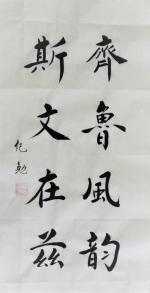 齊魯風韵
斯文在兹
纪勉